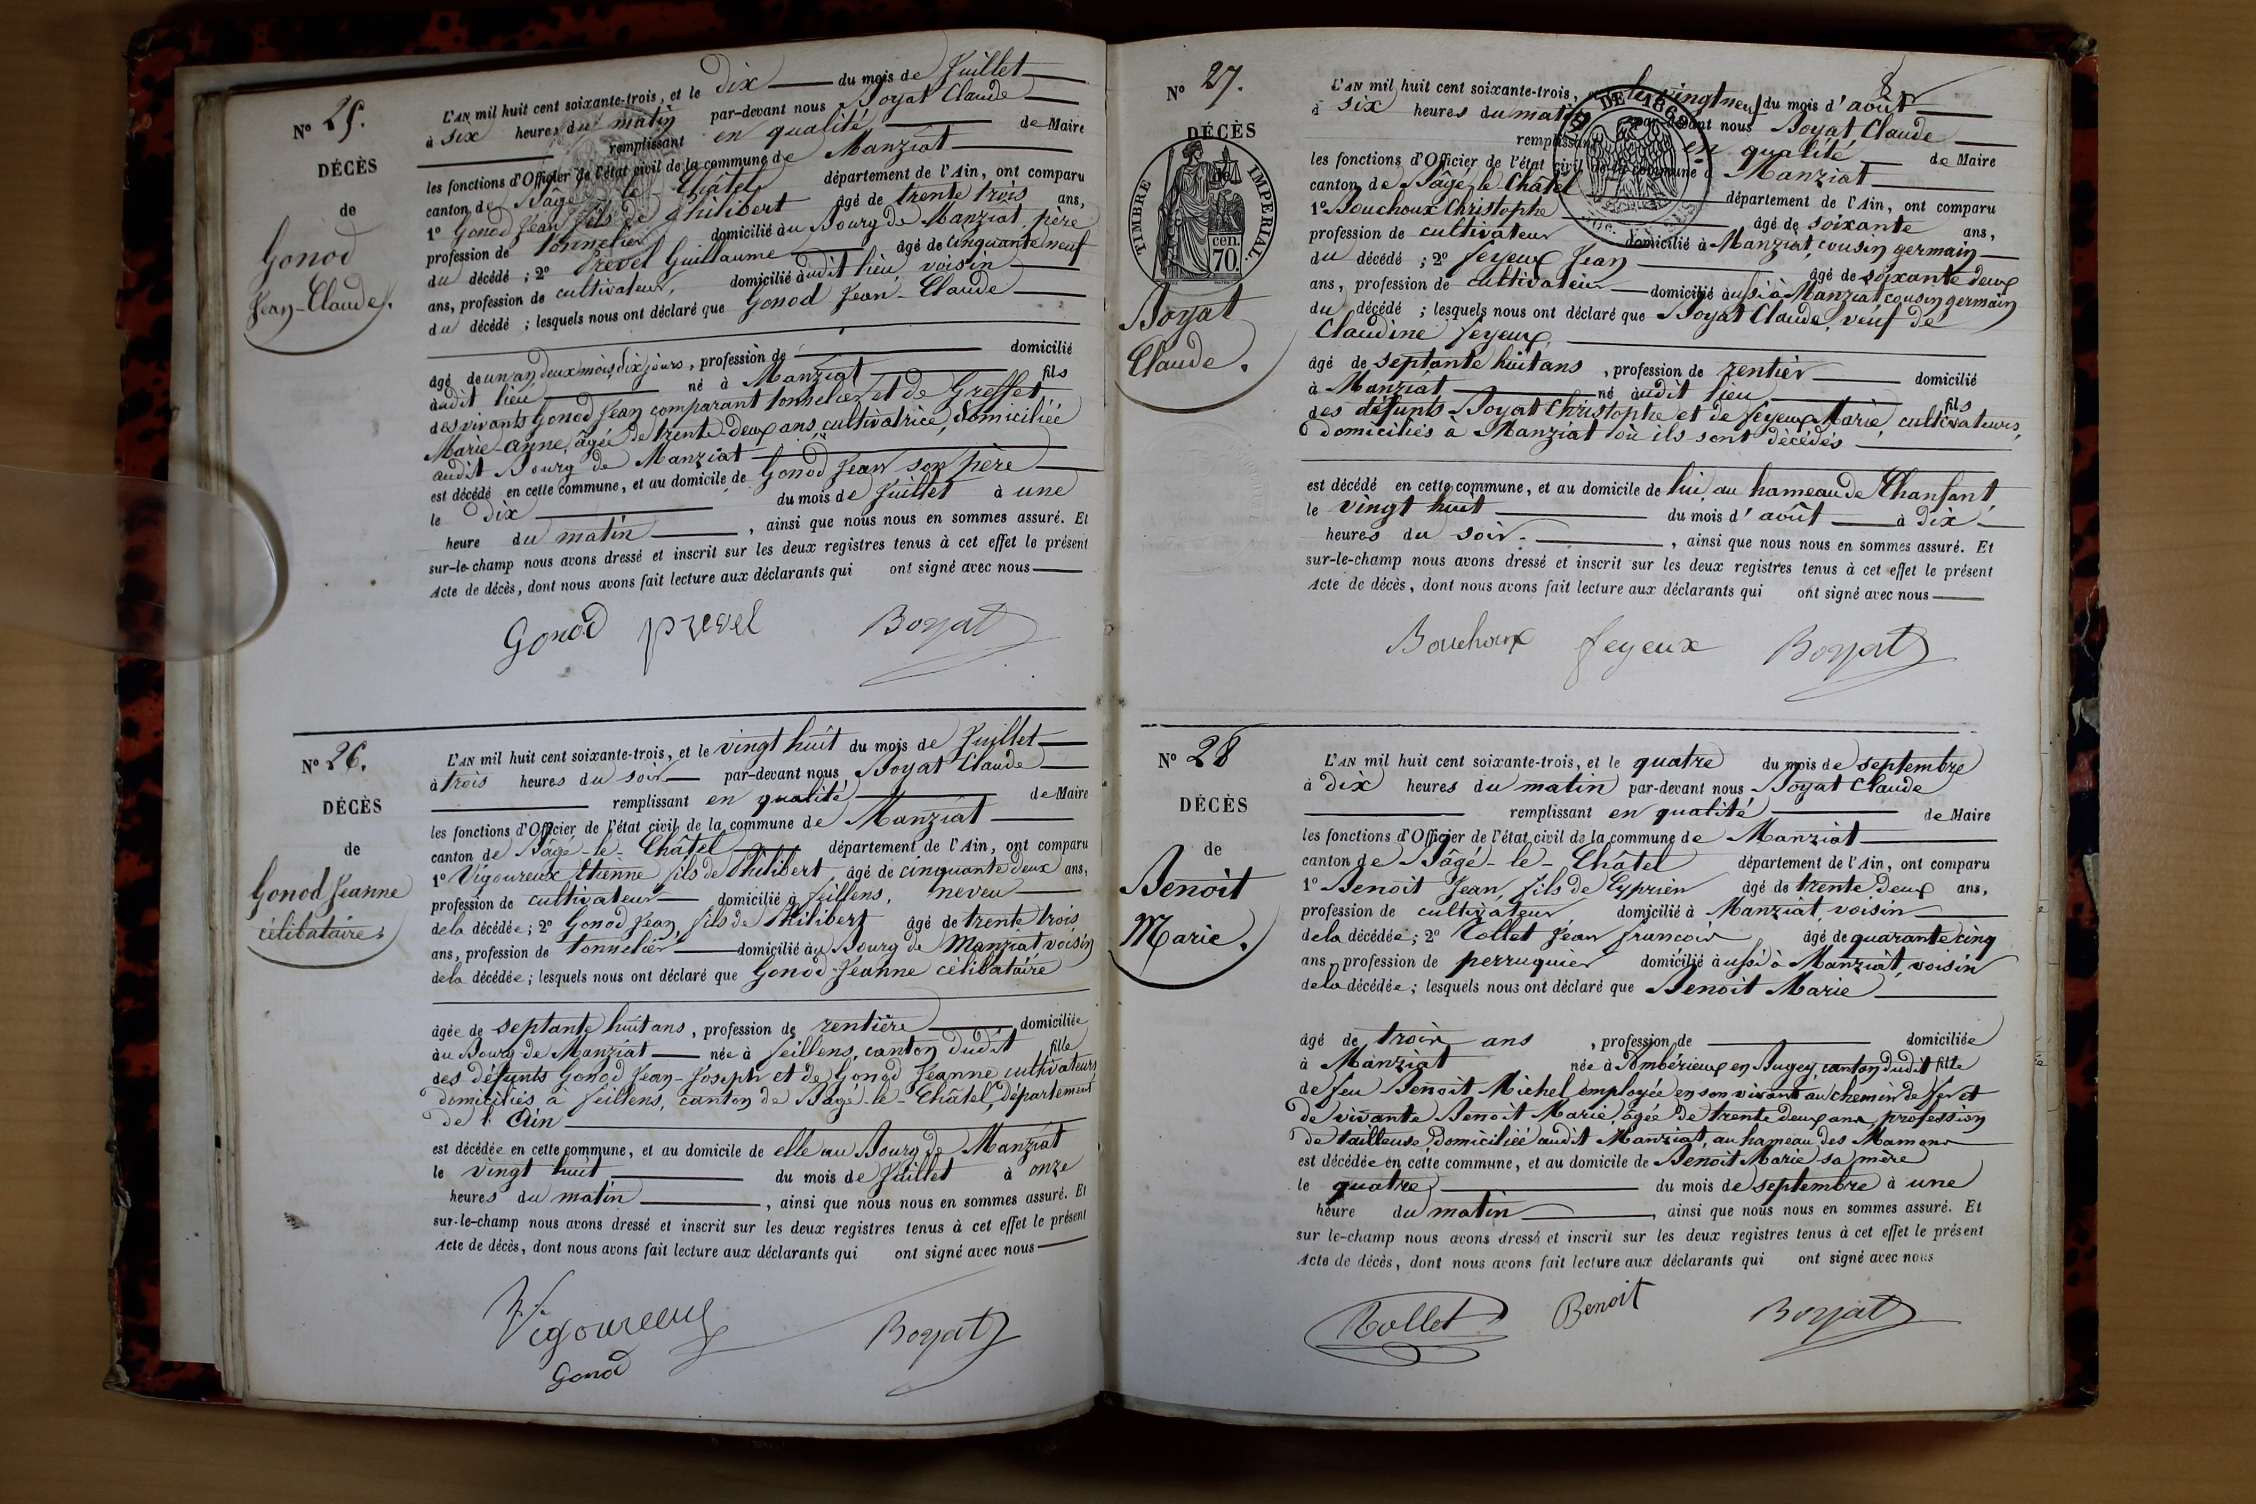 Nº 25.
DÉCÈS
de
Gonod
Jean-Claude.
L'AN mil huit cent soixante-trois, et le dix du mois de Juillet
à six heures du matin par-devant nous Boyat Claude
remplissant en qualité de Maire
les fonctions d'Officier de l'état civil de la commune de Manziat
canton de Bâgé le Châtel département de l'Ain, ont comparu
1º Gonod Jean fils de Philibert âgé de trente trois ans,
profession de tonnelier domicilié au Bourg de Manziat, père
du décédé ; 2º Prevel Guillaume âgé de cinquante neuf
ans, profession de cultivateur, domicilié audit lieu, voisin
du décédé ; lesquels nous ont déclaré que Gonod Jean-Claude
âgé de un an deux mois dix jours, profession de domicilié
audit lieu né à Manziat fils
des vivants Gonod Jean comparant tonnelier et de Greffet
Marie-anne, âgée de trente-deux ans, cultivatrice, domiciliée
audit Bourg de Manziat
est décédé en cette commune, et au domicile de Gonod Jean son père
le dix du mois de Juillet à une
heure du matin, ainsi que nous nous en sommes assuré. Et
sur-le-champ nous avons dressé et inscrit sur les deux registres tenus à cet effet le présent
Acte de décès, dont nous avons fait lecture aux déclarants qui ont signé avec nous
Gonod prevel Boyat
Nº 26.
DÉCÈS
de
Gonod Jeanne
célibataire
L'AN mil huit cent soixante-trois, et le vingt huit du mois de Juillet
à trois heures du soir par-devant nous Boyat Claude
remplissant en qualité de Maire
les fonctions d'Officier de l'état civil de la commune de Manziat
canton de Bâgé-le-Châtel département de l'Ain, ont comparu
1º Vigoureux Etienne fils de Philibert, âgé de cinquante deux ans,
profession de cultivateur domicilié à feillens, neveu
de la décédée ; 2º Gonod Jean, fils de Philibert âgé de trente trois
ans, profession de tonnelier domicilié au Bourg de Manziat voisin
de la décédée ; lesquels nous ont déclaré que Gonod Jeanne célibataire
âgée de septante huit ans, profession de rentière domiciliée
au Bourg de Manziat née à feillens, canton dudit fille
des défunts Gonod Jean-Joseph et de Gonod Jeanne cultivateurs
domiciliés à feillens, canton de Bâgé-le-Châtel, département
de l'Ain
est décédée en cette commune, et au domicile de elle au Bourg de Manziat
le vingt huit du mois de Juillet à onze
heures du matin, ainsi que nous nous en sommes assuré. Et
sur-le-champ nous avons dressé et inscrit sur les deux registres tenus à cet effet le présent
Acte de décès, dont nous avons fait lecture aux déclarants qui ont signé avec nous
Vigoureux Boyat
Gonod
Nº 27.
DÉCÈS
de
TIMBRE IMPERIAL
70 cen.
Boyat
Claude.
DE 186
L'AN mil huit cent soixante-trois, le vingt neuf du mois d'août
à six heures du matin par-devant nous Boyat Claude
remplissant en qualité de Maire
les fonctions d'Officier de l'état civil de la commune de Manziat
canton de Bâgé le Châtel département de l'Ain, ont comparu
1º Bouchoux Christophe âgé de soixante ans,
profession de cultivateur domicilié à Manziat, cousin germain
du décédé ; 2º feyeux Jean âgé de soixante deux
ans, profession de cultivateur domicilié aussi à Manziat cousin germain
du décédé ; lesquels nous ont déclaré que Boyat Claude, veuf de
Claudine feyeux,
âgé de septante huit ans, profession de rentier domicilié
à Manziat né audit lieu fils
des défunts Boyat Christophe et de feyeux Marie, cultivateurs,
domiciliés à Manziat où ils sont décédés
est décédé en cette commune, et au domicile de lui au hameau de Chanfant
le vingt huit du mois d'août à dix
heures du soir, ainsi que nous nous en sommes assuré. Et
sur-le-champ nous avons dressé et inscrit sur les deux registres tenus à cet effet le présent
Acte de décès, dont nous avons fait lecture aux déclarants qui ont signé avec nous
Bouchoux feyeux Boyat
Nº 28
DÉCÈS
de
Benoit
Marie.
L'AN mil huit cent soixante-trois, et le quatre du mois de septembre
à dix heures du matin par-devant nous Boyat Claude
remplissant en qualité de Maire
les fonctions d'Officier de l'état civil de la commune de Manziat
canton de Bâgé-le-Châtel département de l'Ain, ont comparu
1º Benoit Jean, fils de Cyprien âgé de trente deux ans,
profession de cultivateur domicilié à Manziat, voisin
de la décédée ; 2º Tollet Jean francois âgé de quarante cinq
ans, profession de perruquier domicilié aussi à Manziat, voisin
de la décédée ; lesquels nous ont déclaré que Benoit Marie
âgé de trois ans, profession de domiciliée
à Manziat née à Ambérieux en Bugey, canton dudit fille
de feu Benoit Michel employée en son vivant au chemin de fer et
de vivante Benoit Marie, âgée de trente deux ans, profession
de tailleuse domiciliée audit Manziat, au hameau des Mamons
est décédée en cette commune, et au domicile de Benoit Marie sa mère
le quatre du mois de septembre à une
heure du matin, ainsi que nous nous en sommes assuré. Et
sur-le-champ nous avons dressé et inscrit sur les deux registres tenus à cet effet le présent
Acte de décès, dont nous avons fait lecture aux déclarants qui ont signé avec nous
Tollet Benoit Boyat